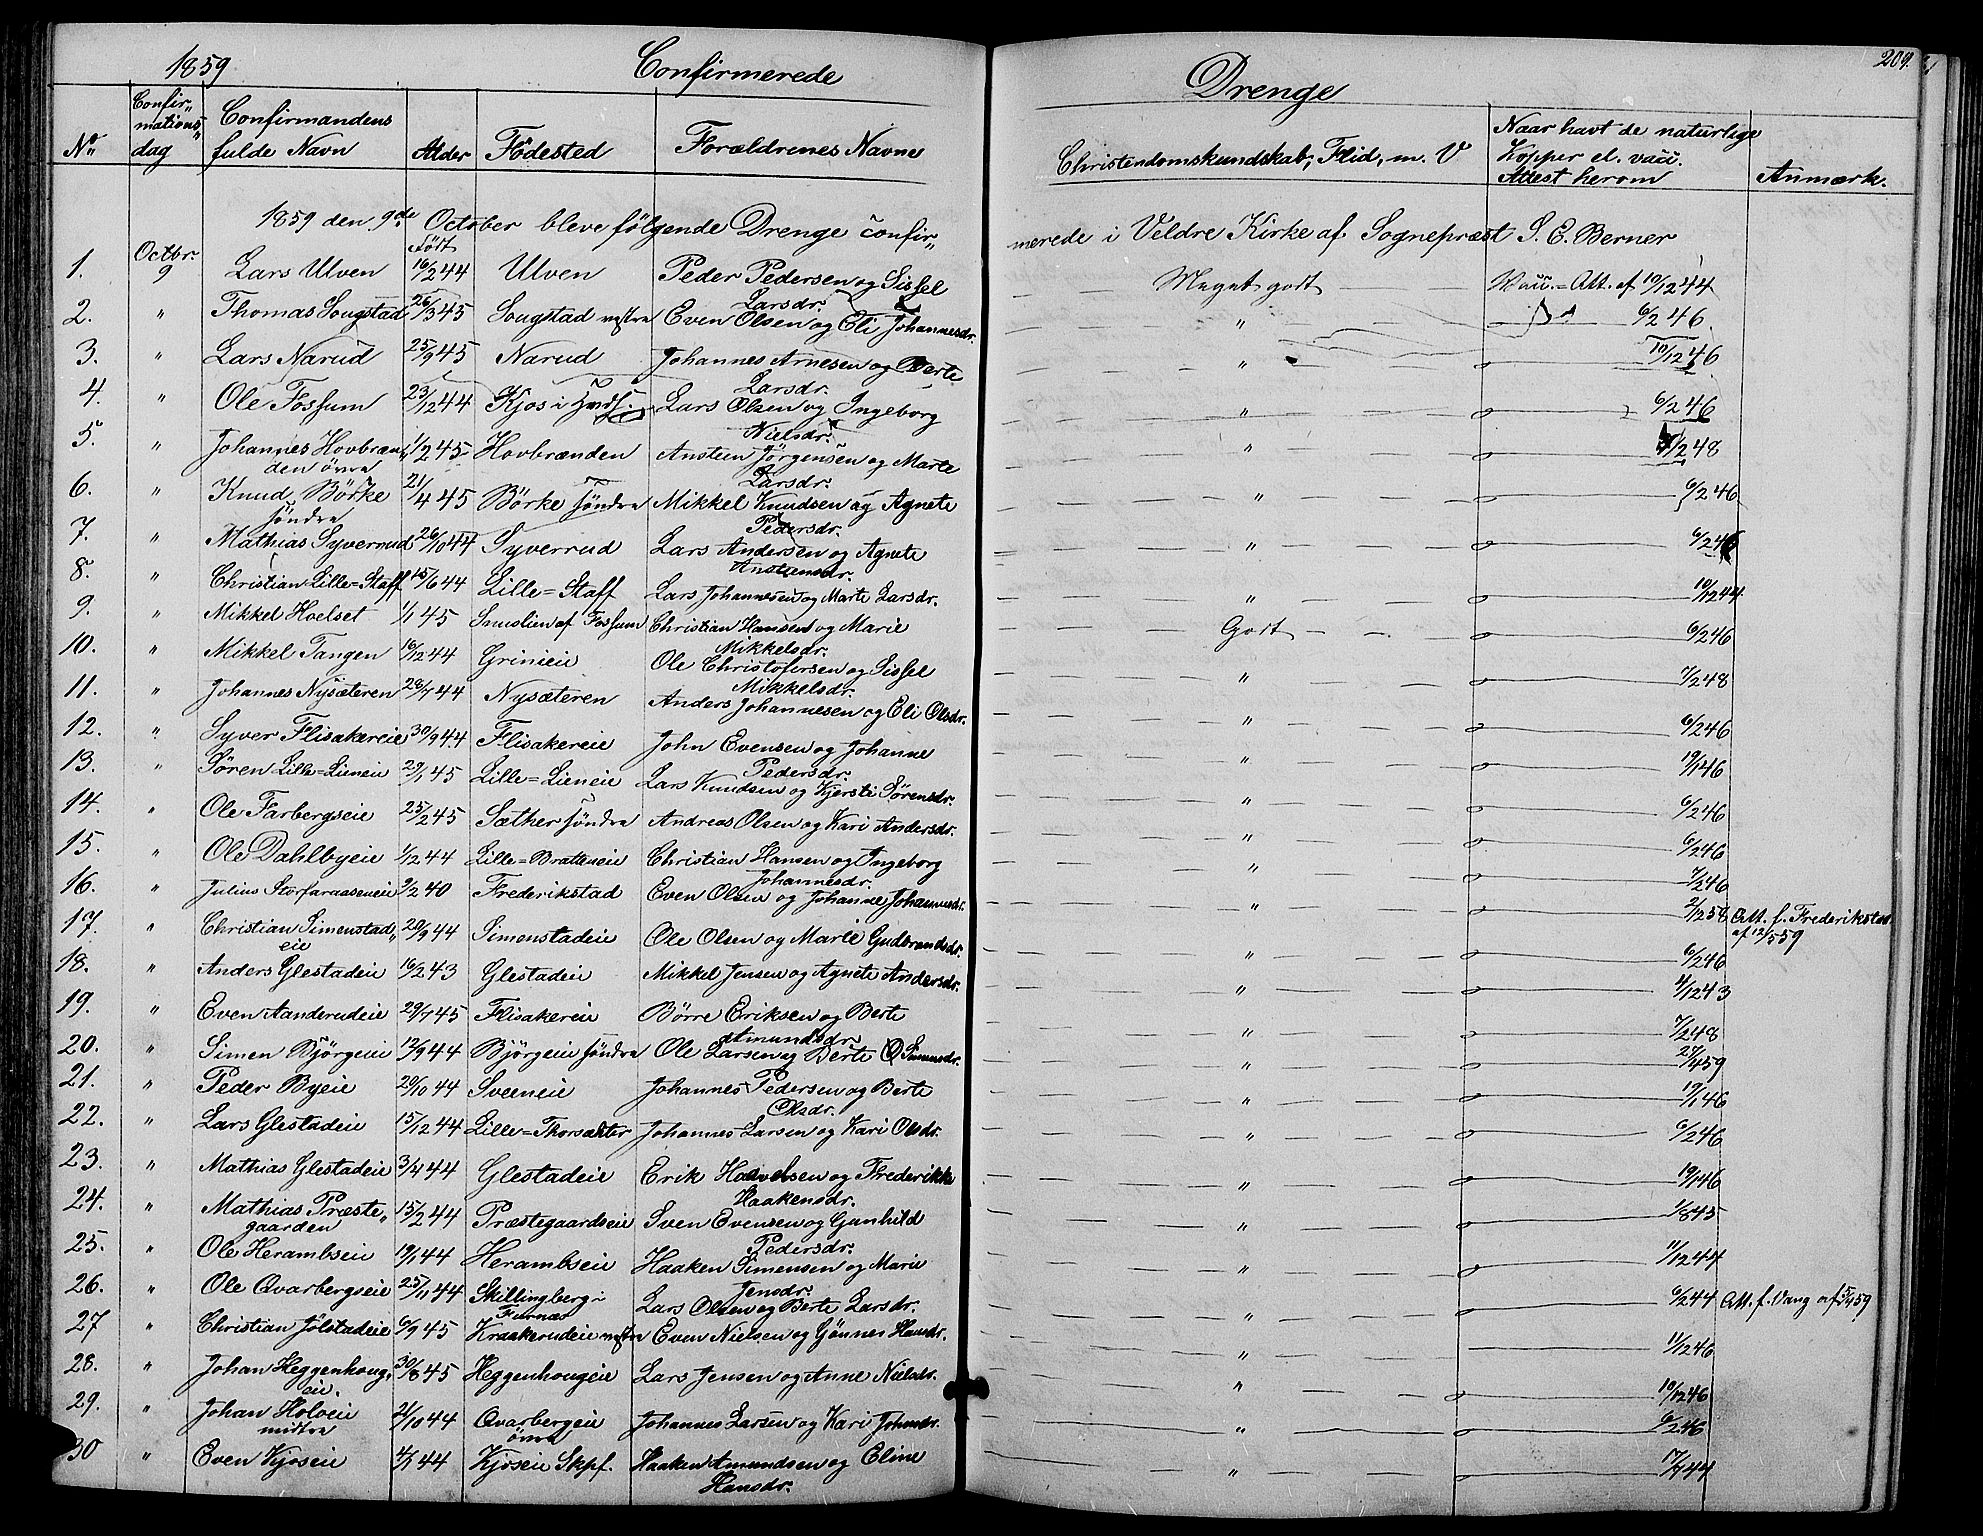 1859 Confirmerede Drenge 209.
No Confir„mations„dag Confirmandens fulde Navn Alder Födested Forældrenes Navne Christendomskundskab, Flid, m. V Naar havt de naturlige Kopper el. vacc. Attest herom Anmærk.
1859 den 9de October bleve følgende Drenge confir„merede i Veldre Kirke af Sognepræst S. C. Berner
1. Octbr. 9 Lars Ulven Født 16/2 44 Ulven Peder Pedersen og Sissel Larsdr. Meget godt Vacc. Att. af 10/12 44
2. „ Thomas Sougstad 26/3 45 Sougstad vestre Even Olsen og Eli Johannesdr. „ 6/2 46.
3. „ Lars Narud 25/9 45 Narud Johannes Arnesen og Berte Larsdr. „ 10/12 46
4. „ Ole Fossum 23/12 44 Kjos i Lars Olsen og Ingeborg Nielsdr. „ 6/2 46
5. „ Johannes Hovbrænden övra 1/2 45 Hovbrænden Ansteen Jörgensen og Marte Larsdr. „ /2 48
6. „ Knud Börke söndra 21/4 45 Börke söndra Mikkel Knudsen og Agnete Pedersdr. „ 6/2 46
7. „ Mathias Syverrud 26/10 44 Syverrud Lars Andersen og Agnete Anstensdr. „ 6/2 46
8. „ Christian Lille=Staff 15/6 44 Lille=Staff Lars Johannesen og Marte Larsdr. „ 10/12 44
9. „ Mikkel Hoelset 1/1 45 Smuslien af Fossum Christian Hansen og Marie Mikkelsdr. Godt 6/2 46
10. „ Mikkel Tangen 16/12 44 Grinieie Ole Christofersen og Sissel Mikkelsdr. „ 7/2 48
11. „ Johannes Nysæteren 28/7 44 Nysæteren Anders Johannesen og Eli Olsdr. „ 6/2 46
12. „ Syver Flisakereie 30/9 44 Flisakereie John Evensen og Johanne Pedersdr. „ 19/1 46
13. „ Sören Lille=Lieneie 29/1 45 Lille=Lieneie Lars Knudsen og Kjersti Sörensdr. „ 6/2 46
14. „ Ole Farbergseie 25/2 45 Sæther söndra Andreas Olsen og Kari Andersdr. „ 6/2 46
15. „ Ole Dahlbyeie 1/12 44 Lille=Bratteneie Christian Hansen og Ingeborg Johannesdr. „ 7/2 46
16. „ Julius Storfaraaseneie 9/2 40 Frederikstad Even Olsen og Johanne Johannesdr. „ 2/12 58 Att. f. Frederikstad af 12/5 59
17. „ Christian Simenstad„eie 20/9 44 Simenstadeie Ole Olsen og Marie Gudbrandsdr. „ 6/2 46
18. „ Anders Glestadeie 16/2 43 Glestadeie Mikkel Jensen og Agnete Andersdr. „ 4/12 43
19. „ Even Aanderudeie 29/7 45 Flisakereie Börre Eriksen og Berte Amundsdr. „ 7/2 48
20. „ Simen Björgeeie 12/9 44 Björgeeie söndra Ole Larsen og Berte Simensdr. „ 27/4 59
21. „ Peder Byeie 20/10 44 Sveeneie Johannes Pedersen og Berte Olsdr. „ 19/1 46
22. „ Lars Glestadeie 15/12 44 Lille=Thorsæter Johannes Larsen og Kari Olsdr. „ 6/2 46
23. „ Mathias Glestadeie 3/4 44 Glestadeie Erik Haavelsen og Frederikke Haakensdr. „ 19/1 46
24. „ Mathias Præste„gaarden 15/2 44 Præstegaardseie Sven Evensen og Gunhild Pedersdr. „ 1/8 45
25. „ Ole Herambseie 19/1 44 Herambseie Haaken Simensen og Marie Jensdr. „ 11/12 44
26. „ Ole Qvarbergseie 25/11 44 Skillingberg i Furnæs Lars Olsen og Berte Larsdr. „ 6/2 44 Att. f. Vang af 5/4 59
27 „ Christian Jölstadeie 6/9 45 Kraakerudeie vestre Even Nielsen og Gönner Hansdr. „ 11/12 46
28. „ Johan Heggenhougeie. 30/8 45 Heggenhougeie Lars Jensen og Anne Nielsdr. „ 10/12 46
29. „ Johan Holoeie midtra 21/10 44 Qvarbergeie övra Johannes Larsen og Kari Johnsdr. „ 6/2 46
30 „ Even Kjoseie 4/7 44 Kjoseie Skpf. Haaken Amundsen og Eline Hansdr. „ 17/7 44